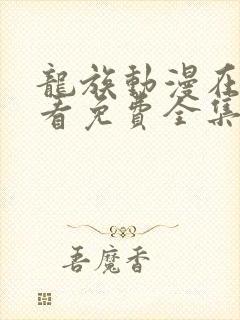 龍族動漫在
看免費全集
吾魔香